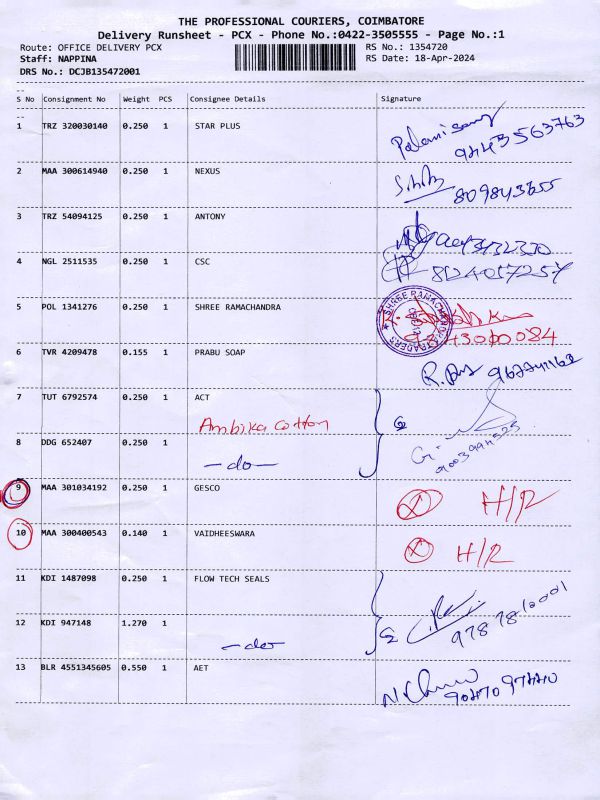 THE PROFESSIONAL COURIERS, COIMBATORE
Delivery Runsheet - PCX - Phone No.:0422-3505555 - Page No.:1
Route: OFFICE DELIVERY PCX RS No.: 1354720
Staff: NAPPINA RS Date: 18-Apr-2024
DRS No.: DCJB135472001
S No Consignment No Weight PCS Consignee Details Signature
1 TRZ 320030140 0.250 1 STAR PLUS
9443563763
2 MAA 300614940 0.250 1 NEXUS
3 TRZ 54094125 0.250 1 ANTONY
4 NGL 2511535 0.250 1 CSC
8124057257
5 POL 1341276 0.250 1 SHREE RAMACHANDRA
9843000084
6 TVR 4209478 0.155 1 PRABU SOAP
7 TUT 6792574 0.250 1 ACT
Ambika Cotton
8 DDG 652407 0.250 1
-do-
9 MAA 301034192 0.250 1 GESCO H/R
10 MAA 300400543 0.140 1 VAIDHEESWARA H/R
11 KDI 1487098 0.250 1 FLOW TECH SEALS
12 KDI 947148 1.270 1
-do-
13 BLR 4551345605 0.550 1 AET